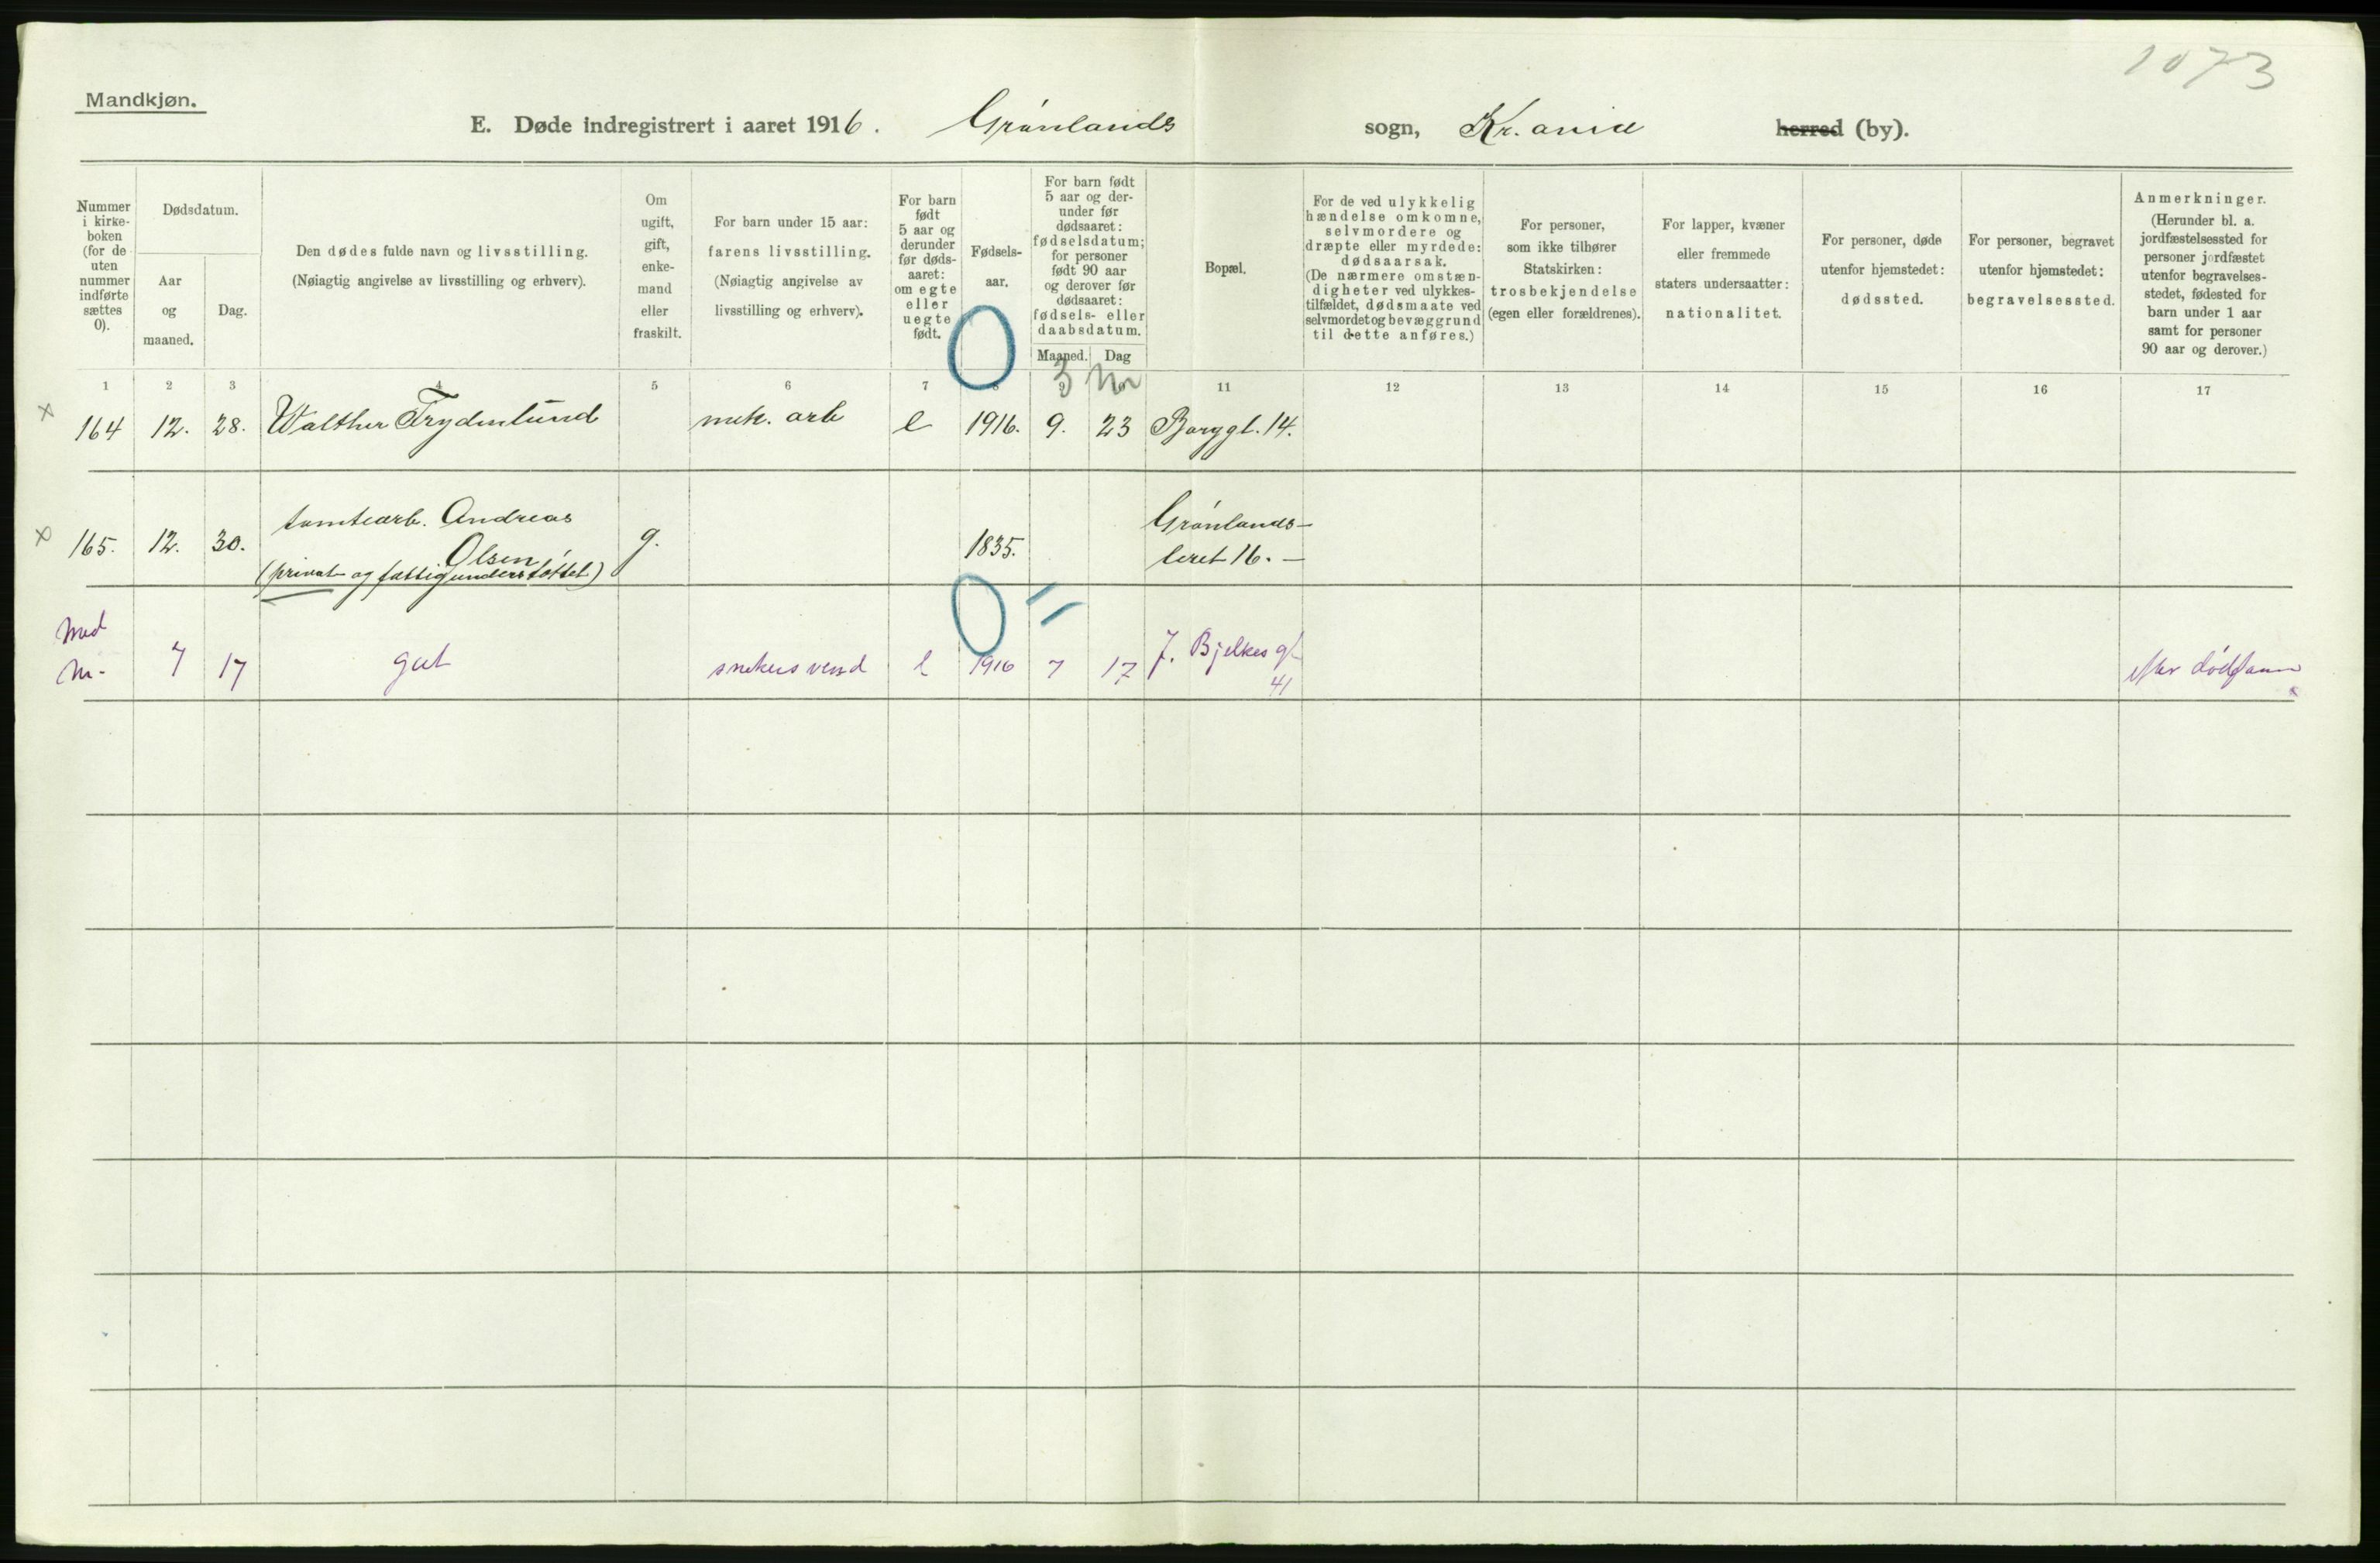 1073
Mandkjøn.
E. Døde indregistrert i aaret 1916. Grønlands sogn, Kr.ania herred (by).
Nummer i kirke-boken (for de uten nummer indførte sættes 0).
Dødsdatum.
Aar og maaned.
Dag.
Den dødes fulde navn og livsstilling.
(Nøiagtig angivelse av livsstilling og erhverv).
Om ugift, gift, enke-mand eller fraskilt.
For barn under 15 aar:
farens livsstilling.
(Nøiagtig angivelse av
livsstilling og erhverv).
For barn født 5 aar og derunder før døds-aaret: om egte eller uegte født.
Fødsels-aar.
For barn født 5 aar og der-under før dødsaaret: fødselsdatum; for personer født 90 aar og derover før dødsaaret: fødsels- eller daabsdatum.
Maaned. Dag
Bopæl.
For de ved ulykkelig hændelse omkomne, selvmordere og dræpte eller myrdede: dødsaarsak. (De nærmere omstæn-digheter ved ulykkes-tilfældet, dødsmaate ved selvmordet og bevæggrund til dette anføres.)
For personer, som ikke tilhører Statskirken: trosbekjendelse (egen eller forældrenes).
For lapper, kvæner eller fremmede staters undersaatter: nationalitet.
For personer, døde utenfor hjemstedet: dødssted.
For personer, begravet utenfor hjemstedet: begravelsessted.
Anmerkninger.
(Herunder bl. a. jordfæstelsessted for personer jordfæstet utenfor begravelses-stedet, fødested for barn under 1 aar samt for personer 90 aar og derover.)
1 2 3 4 5 6 7 8 9 11 12 13 14 15 16 17
3 m
× 164 12. 28. Walther Frydenlund mek. arb e 1916. 9. 23 Borggt. 14.
× 165. 12. 30. tomtearb. Andreas Olsen g. 1835. Grønlands-
leret 16. -
(privat og fattigunderstøttet)
Med
m. 7 17 gut snekersvend e 1916 7 17 J. Bjelkes gt
41